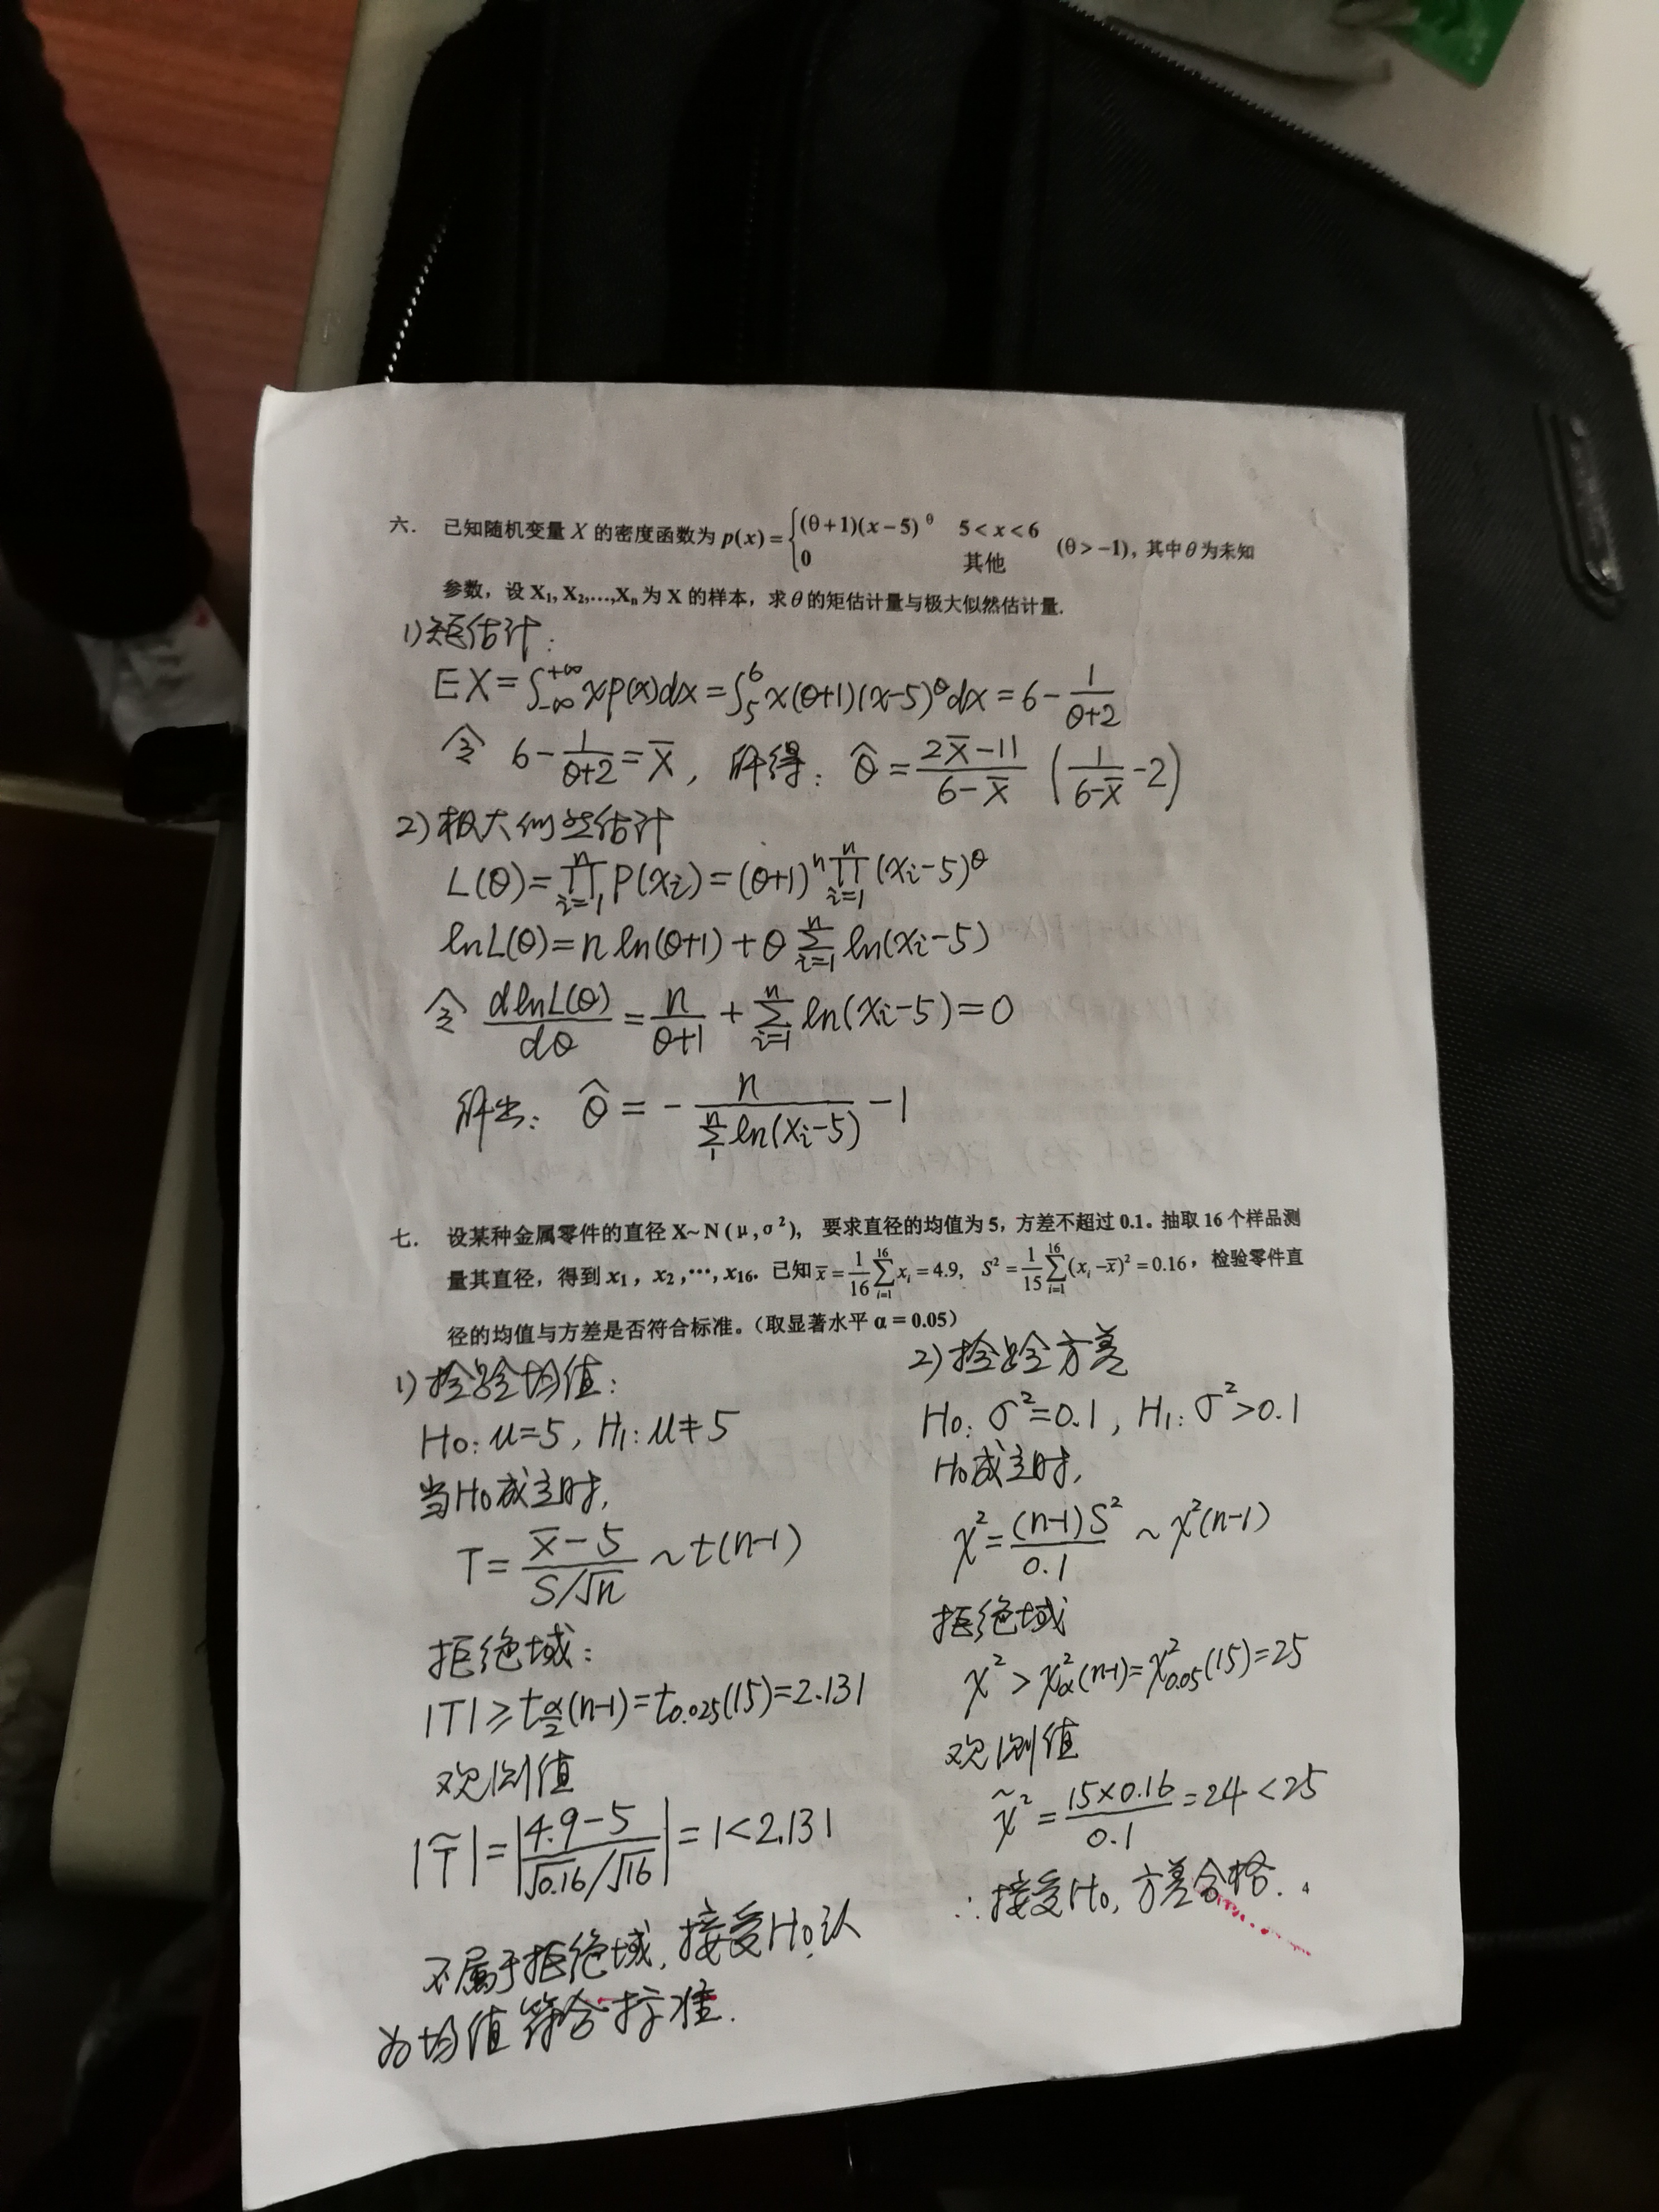 六. 已知随机变量 X 的密度函数为 p(x)={(θ+1)(x−5)^θ 5<x<6 0 其他 (θ>−1), 其中θ为未知
参数, 设 X₁, X₂,...,Xₙ 为 X 的样本, 求θ的矩估计量与极大似然估计量.
1) 矩估计:
EX=∫_{-∞}^{+∞} xp(x)dx=∫_5^6 x(θ+1)(x-5)^θ dx=6-1/(θ+2)
令 6-1/(θ+2)=X̄, 解得: θ̂=(2X̄-11)/(6-X̄) (1/(6-X̄)-2)
2) 极大似然估计
L(θ)=∏_{i=1}^n p(xi)=(θ+1)^n ∏_{i=1}^n (xi-5)^θ
lnL(θ)=n ln(θ+1)+θ∑_{i=1}^n ln(xi-5)
令 dlnL(θ)/dθ=n/(θ+1)+∑_{i=1}^n ln(xi-5)=0
解出: θ̂=-n/(∑_1^n ln(xi-5))-1
七. 设某种金属零件的直径 X~N(μ,σ²), 要求直径的均值为 5, 方差不超过 0.1。抽取 16 个样品测
量其直径, 得到 x₁, x₂,⋯, x₁₆. 已知 x̄=1/16 ∑_{i=1}^{16} xᵢ=4.9, S²=1/15 ∑_{i=1}^{16}(xᵢ−x̄)²=0.16, 检验零件直
径的均值与方差是否符合标准。(取显著水平 α=0.05)
1) 检验均值:
H₀: μ=5, H₁: μ≠5
当H₀成立时,
T=(x̄-5)/(S/√n)~t(n-1)
拒绝域:
|T|≥t_{α/2}(n-1)=t_{0.025}(15)=2.131
观测值
|T̃|=|(4.9-5)/(√0.16/√16)|=1<2.131
不属于拒绝域, 接受H₀, 认
为均值符合标准.
2) 检验方差
H₀: σ²=0.1, H₁: σ²>0.1
H₀成立时,
χ²=(n-1)S²/0.1~χ²(n-1)
拒绝域
χ²>χ²_α(n-1)=χ²_{0.05}(15)=25
观测值
χ̃²=15×0.16/0.1=24<25
∴接受H₀, 方差合格.
4